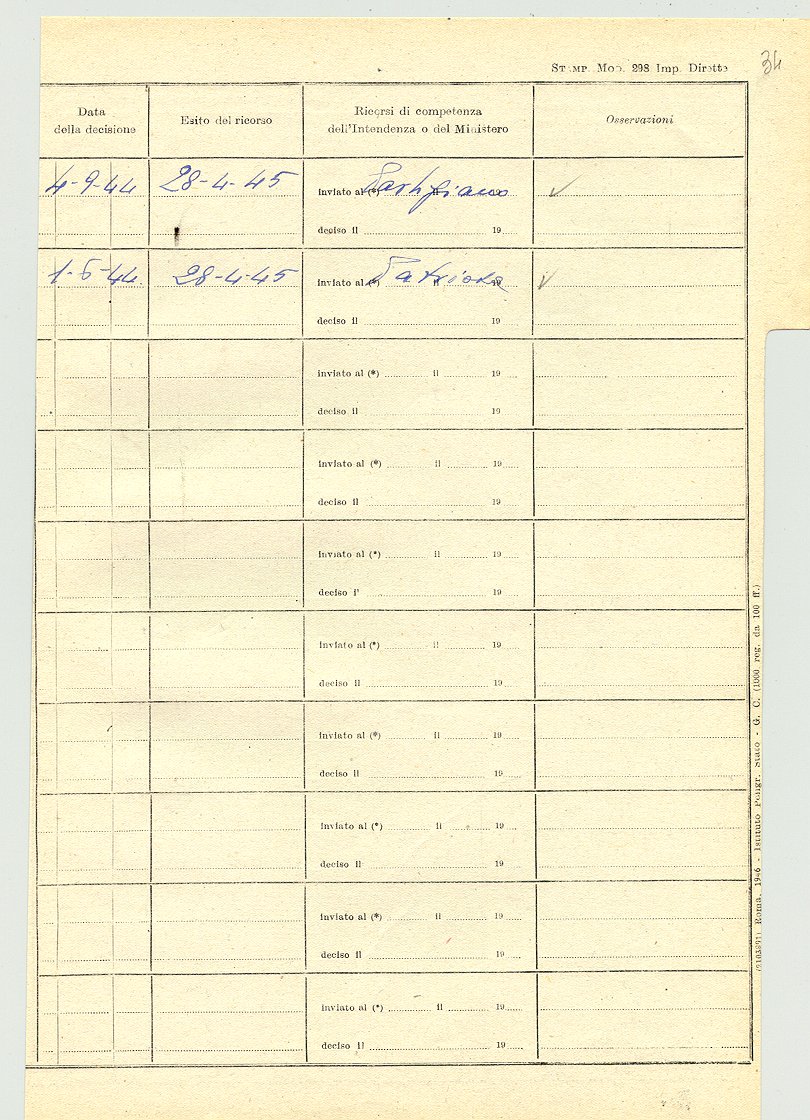 STAMP. MOD. 298 Imp. Dirette
34
Data
della decisione
Esito del ricorso
Ricorsi di competenza
dell'Intendenza o del Ministero
Osservazioni
4-9-44 28-4-45 inviato al (*) Partigiano il 19
deciso il 19
1-5-44 28-4-45 inviato al (*) Patriota il 19
deciso il 19
inviato al (*) il 19
deciso il 19
inviato al (*) il 19
deciso il 19
inviato al (*) il 19
deciso il 19
inviato al (*) il 19
deciso il 19
inviato al (*) il 19
deciso il 19
inviato al (*) il 19
deciso il 19
inviato al (*) il 19
deciso il 19
inviato al (*) il 19
deciso il 19
Roma, 1946 - Istituto Poligr. Stato - G. C. (1000 reg. da 100 ff.)